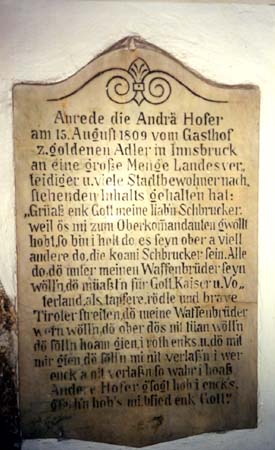 Anrede die Andrä Hofer
am 15. August 1809 vom Gasthof
z. goldenen Adler in Innsbruck
an eine große Menge Landesver,
teidiger u. viele Stadtbewohner nach,
stehenden Inhalts gehalten hat:
„Grüaß enk Gott meine liab'n Sbrucker.
weil ös mi zum Oberkomandanten gwöllt
hobt, so bin i holt do. es seyn ober a viell
andere do, die koani Sbrucker sein. Alle
do, dö unter meinen Waffenbrüder seyn
wöll'n, dö müaßl'n für Gott, Kaiser u. Vo„
terland, als tapfere, rödle und brave
Tiroler streiten, dö meine Waffenbrüder
wern wöll'n, dö ober dös nit tüan wöll'n
dö söll'n hoam gien, i roth enks, u. dö mit
mir gien, dö söll'n mi nit verlaß'n, i wer
enck a nit verlaß'n, so wahr i hoaß
Andere Hofer, g'sogt hob i enck's,
g'sech'n hob's mi, bfied enk Gott!"